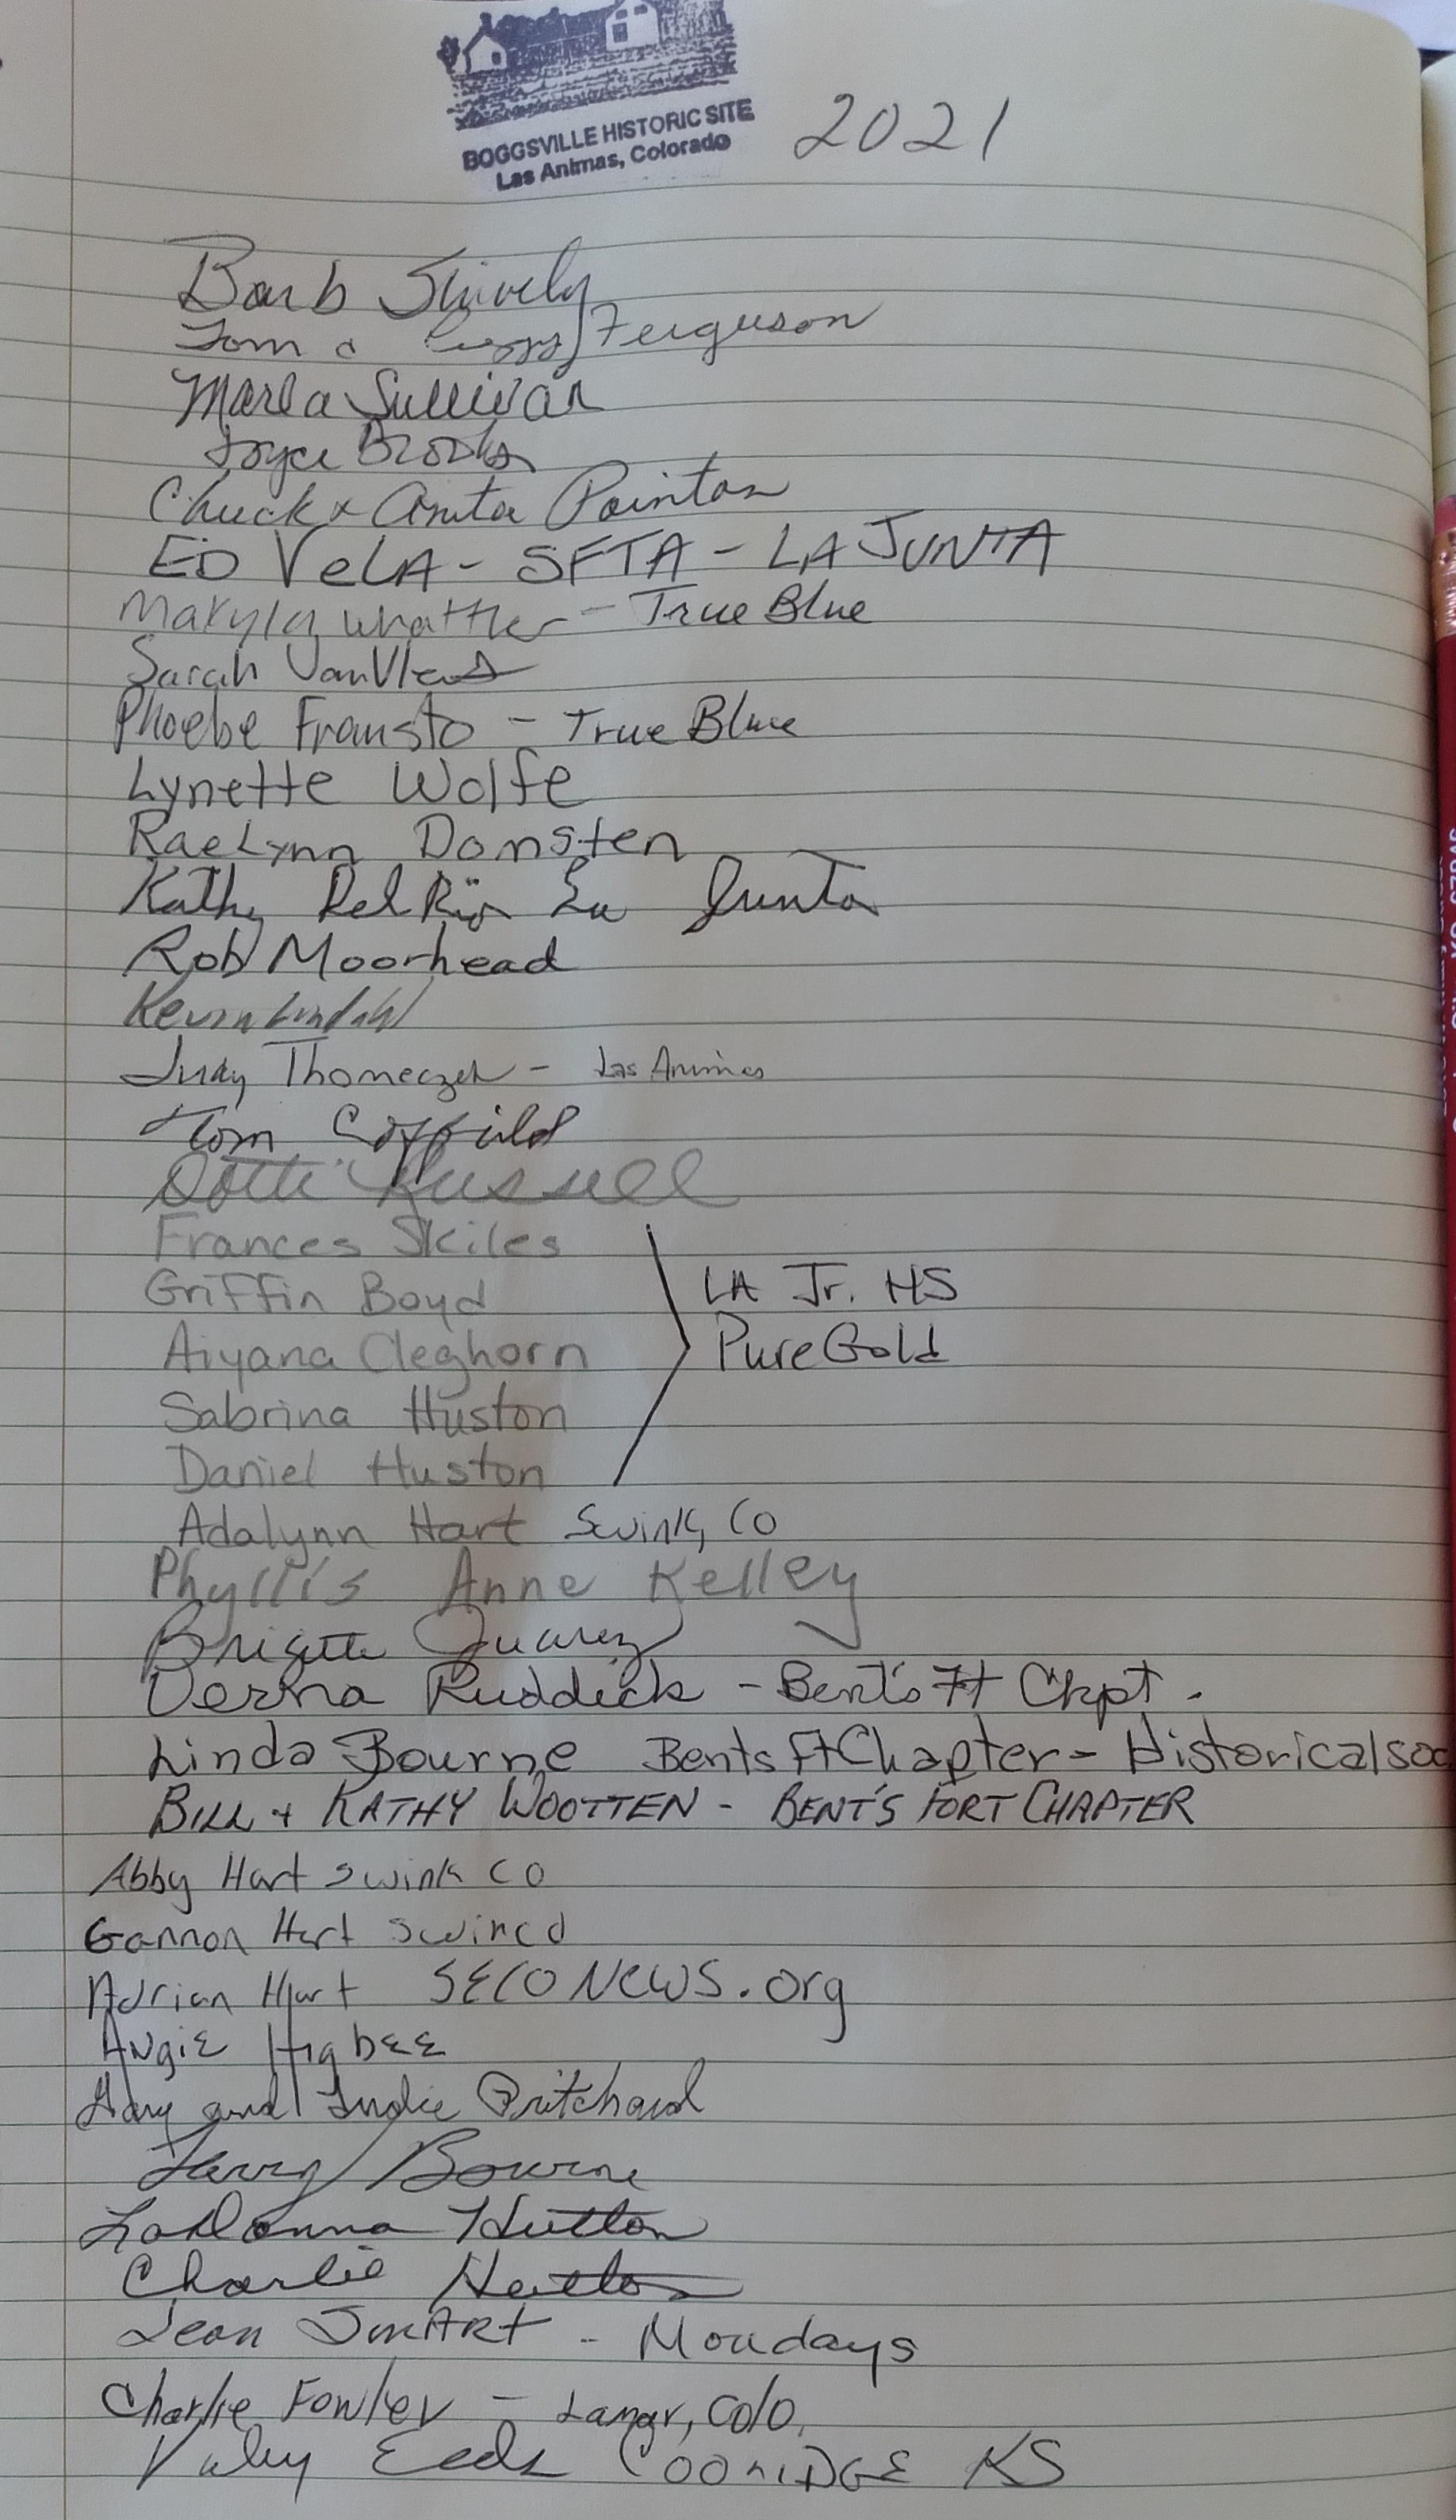 BOGGSVILLE HISTORIC SITE
Las Animas, Colorado
2021
Barb Shively
Tom & Peggy Ferguson
Marla Sullivan
Joyce Brooks
Chuck & Anita Pointon
ED VeLA - SFTA - LA JUNTA
Makyla - True Blue
Sarah
Phoebe Frausto - True Blue
Lynette Wolfe
RaeLynn Domsten
Kathy Del Rio La Junta
Rob Moorhead
Kevin Lindahl
Judy Thomeczek - Las Animas
Tom Coffield
Dotti Russell
Frances Skiles
Griffin Boyd
LA Jr. HS
Aiyana Cleghorn
Pure Gold
Sabrina Huston
Daniel Huston
Adalynn Hart Swink, CO
Phyllis Anne Kelley
Brigitte Juarez
Verna Ruddick - Bent's Ft Chpt.
Linda Bourne Bents Ft Chapter - Historical soc
BILL & KATHY WOOTTEN - BENT'S FORT CHAPTER
Abby Hart Swink CO
Gannon Hart
Adrian Hart SECONEWS.org
ANgiE HigbEE
Gary and Pritchard
Terry Bourne
LaDonna Hutton
Charlie Hutton
Jean SmART - Mondays
Charlie Fowler - Lamar, Colo.
Eads COOLIDGE KS